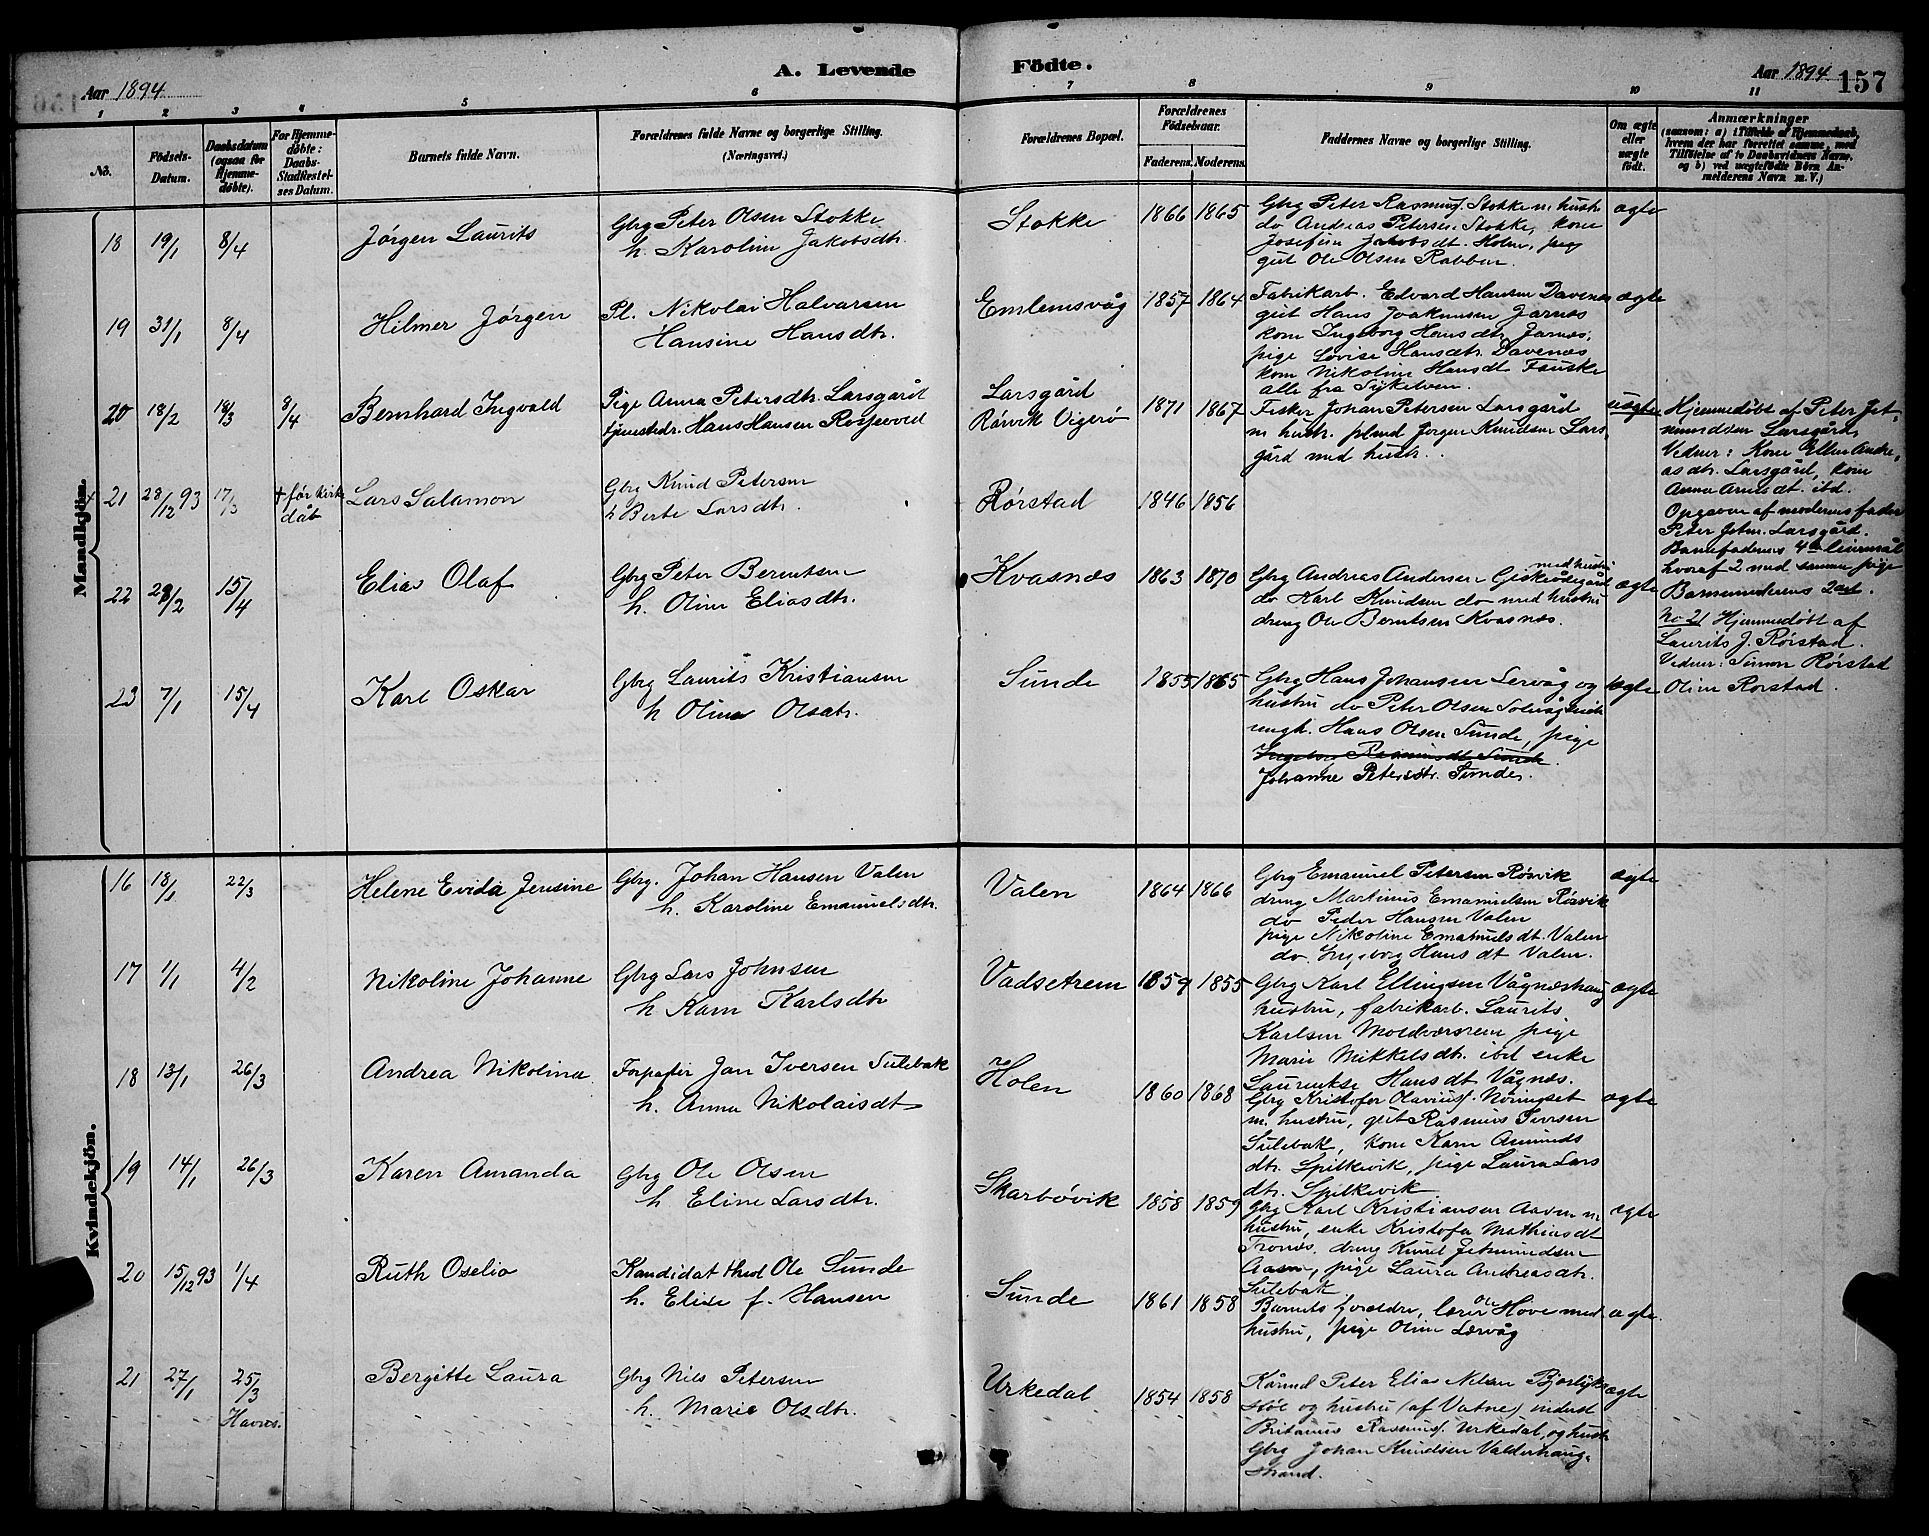 Aar 1894
A. Levende
Födte.
Aar 1894
157
1 2 3 4 5 6 7 8 9 10 11
No.
Födsels-Datum.
Daabsdatum (ogsaa for Hjemme-döbte).
For Hjemme-döbte: Daabs-Stadfæstel-ses Datum.
Barnets fulde Navn.
Forældrenes fulde Navne og borgerlige Stilling. (Næringsvei.)
Forældrenes Bopæl.
Forældrenes Födselsaar.
Faderens. Moderens.
Faddernes Navne og borgerlige Stilling.
Om ægte eller uægte födt.
Anmærkninger
(saasom: a) i Tilfælde af Hjemmedaab,
hvem der har forrettet samme, med
Tilföielse af to Daabsvidners Navne,
og b) ved uægtefödte Börn An-
melderens Navn m. V.)
Mandkjön.
18 19/1 8/4 Jørgen Laurits
Gbrg Peter Olsen Stokke
h. Karolin Jakobsdtr.
Stokke 1866 1865
Gbrg Peter Rasmus. Stokke m. hustr
do Andreas Petersen Stokke, kone
Josefin Jakobsdt. Holen, pig
gut Ole Olsen Rabben.
ægte
19 31/1 8/4 Hilmer Jørgen
Pl. Nikolai Halvarsen
Hansine Hansdtr.
Emlemsvåg 1857 1864
Fabrikarb. Edvard Hansen Davenes
gut Hans Joakimsen Jarnes
kone Ingeborg Hansdtr. Jarnes,
pige Lovise Hansdtr. Davenes
kone Nikoline Hansdt Fauske
alle fra Sykelven.
ægte
20 18/2 18/3 8/4 Bernhard Ingvald
Pige Anna Petersdtr. Larsgård
tjenestedr. Hans Hansen Rosjevold
Larsgård
Rørvik Vigerø
1871 1867
Fisker Johan Petersen Larsgård
m. hustr. plmd Jørgen Knudsen Lars-
gård med hustr.
uægte
Hjemmedøbt af Peter Jet-
mundsen Larsgård
Vidner: Kone Ellen Andre-
asdtr. Larsgård, kone
Anna Arnesdt. ibd.
Opgaven af moderens fader
Peter Jetm. Larsgård.
Barnefaderens 4de leiermål
hvoraf 2 med samme pige
Barnemoderens 2det.
21 28/12 93 17/3 † før kirk
dåb
Lars Salamon
Gbrg Knud Petersen
h Berte Larsdtr.
Rørstad 1846 1856
No 21 Hjemmedøbt af
Laurits J. Rørstad.
Vidner: Simon Rørstad
Olin Rørstad.
22 28/2 15/4 Elias Olaf
Gbrg Peter Berntsen
h. Olin Eliasdtr.
Kvasnes 1863 1870
med hustr
Gbrg Andreas Andersen Giskeødegård
do Karl Knudsen do med hustru
dreng Ole Berntsen Kvasnes.
ægte
23 7/1 15/4 Karl Oskar
Gbrg Laurits Kristiansen
h Oline Olsdtr.
Sunde 1855 1865
Gbrg Hans Johansen Lervåg og
hustru do Peter Olsen Solevåg
ungk. Hans Olsen Sunde, pige
Johanne Petersdtr. Sunde.
ægte
Kvindekjön.
16 18/1 22/3 Helene Evida Jensine
Gbrg. Johan Hansen Valen
h. Karoline Emanuelsdtr.
Valen 1864 1866
Gbrg Emanuel Petersen Røsvik
dreng Martinus Emanuelsen Røsvik
do Peder Hansen Valen
pige Nikoline Emanuelsdt. Valen
do. Ingeborg Hansdt Valen.
ægte
17 1/1 4/2 Nikoline Johanne
Gbrg Lars Johnsen
h Karn Karlsdtr
Vadsetrem 1859 1855
Gbrg Karl Ellingsen Vågneshaug
hustru, fabrikarb. Laurits
Karlsen Moldværsrem pige
Marie Mikkelsdtr. ibd enke
Laurentse Hansdt Vågnes.
ægte
18 13/1 26/3 Andrea Nikolina
Forpagter Jan Iversen Sulebak
h. Anna Nikolaisdt
Holen 1860 1868
Gbrg Kristofer Olavius. Nøringset
m. hustru, gut Rasmus Iversen
Sulebak, kone Karn Amunds
dtr. Spilkevik, pige Laura Lars
dtr. Spilkevik.
ægte
19 14/1 26/3 Karen Amanda
Gbrg Ole Olsen
h Eline Larsdtr.
Skarbøvik 1858 1859
Gbrg Karl Kristiansen Aasen m
hustru, enke Kristofa Mathiasdt
Tronæs, dreng Knud Jetmundsen
Aasen, pige Laura Andreasdtr.
Sulebak
ægte
20 15/12 93 1/4 Ruth Oselio
Kandidat theol Ole Sunde
h. Elise f. Hansen
Sunde 1861 1858
Barnets forældre, lærer Ole Hove med
hustru, pige Olin Lervåg
ægte.
21 27/1 25/3 Havnes. Bergitte Laura
Gbrg Nils Petersen
h. Marie Olsdtr.
Urkedal 1854 1858
Kårmd Peter Elias Nilsen Bjørlyke
støl og hustru (af Vatne) inderst
Britanus Rasmus. Urkedal, og hustr
Gbrg Johan Knudsen Valderhaug-
strand.
ægte